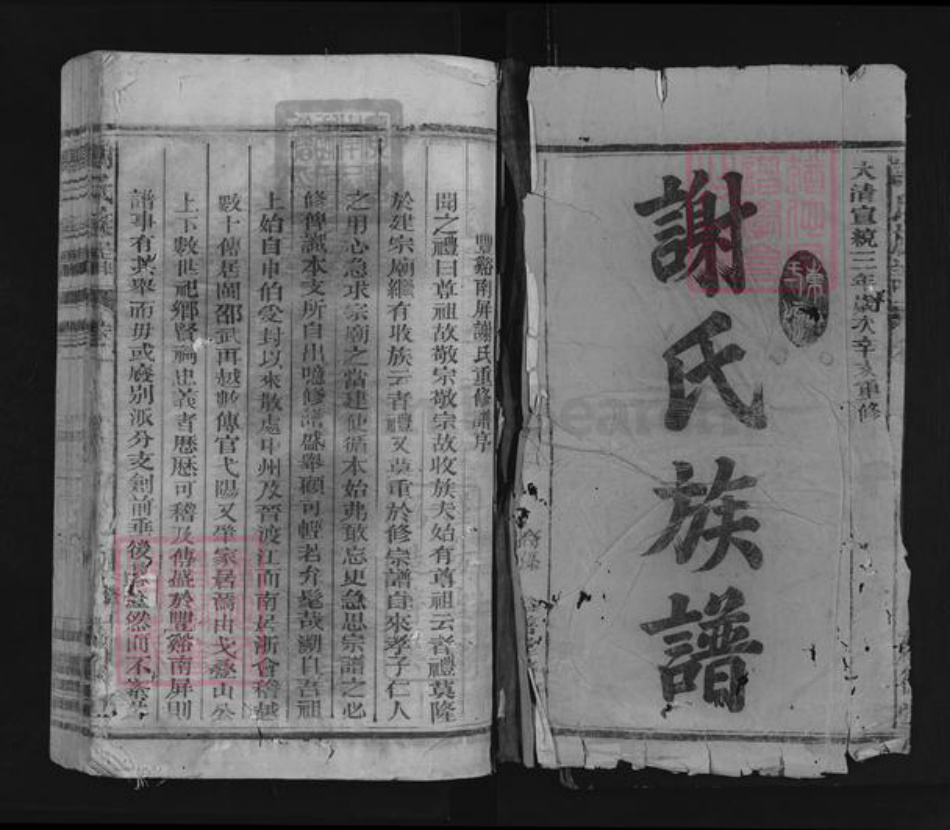 大清宣統三年歲次辛亥重修
謝氏族譜
豐谿南屏謝氏重修譜序
聞之禮曰尊祖故敬宗敬宗故收族夫始有尊祖云者禮莫隆
於建宗廟繼有收族云者禮又莫重於修宗譜自來孝子仁人
之用心急求宗廟之當建使循本始弗敢忘更急思宗譜之必
修俾識本支所自出噫修譜盛舉顧可輕若弁髦哉溯自吾祖
上始自申伯受封以來散處中州及晉渡江而南居浙會稽越
數十傳居閩邵武再越數傳官弋陽又肇家居焉由弋疊山公
上下數世祀鄉賢祠忠義者歷歷可稽及傳盛於豐谿南屏則
譜事有其舉而毋或廢別派分支創前垂後秩然而不紊